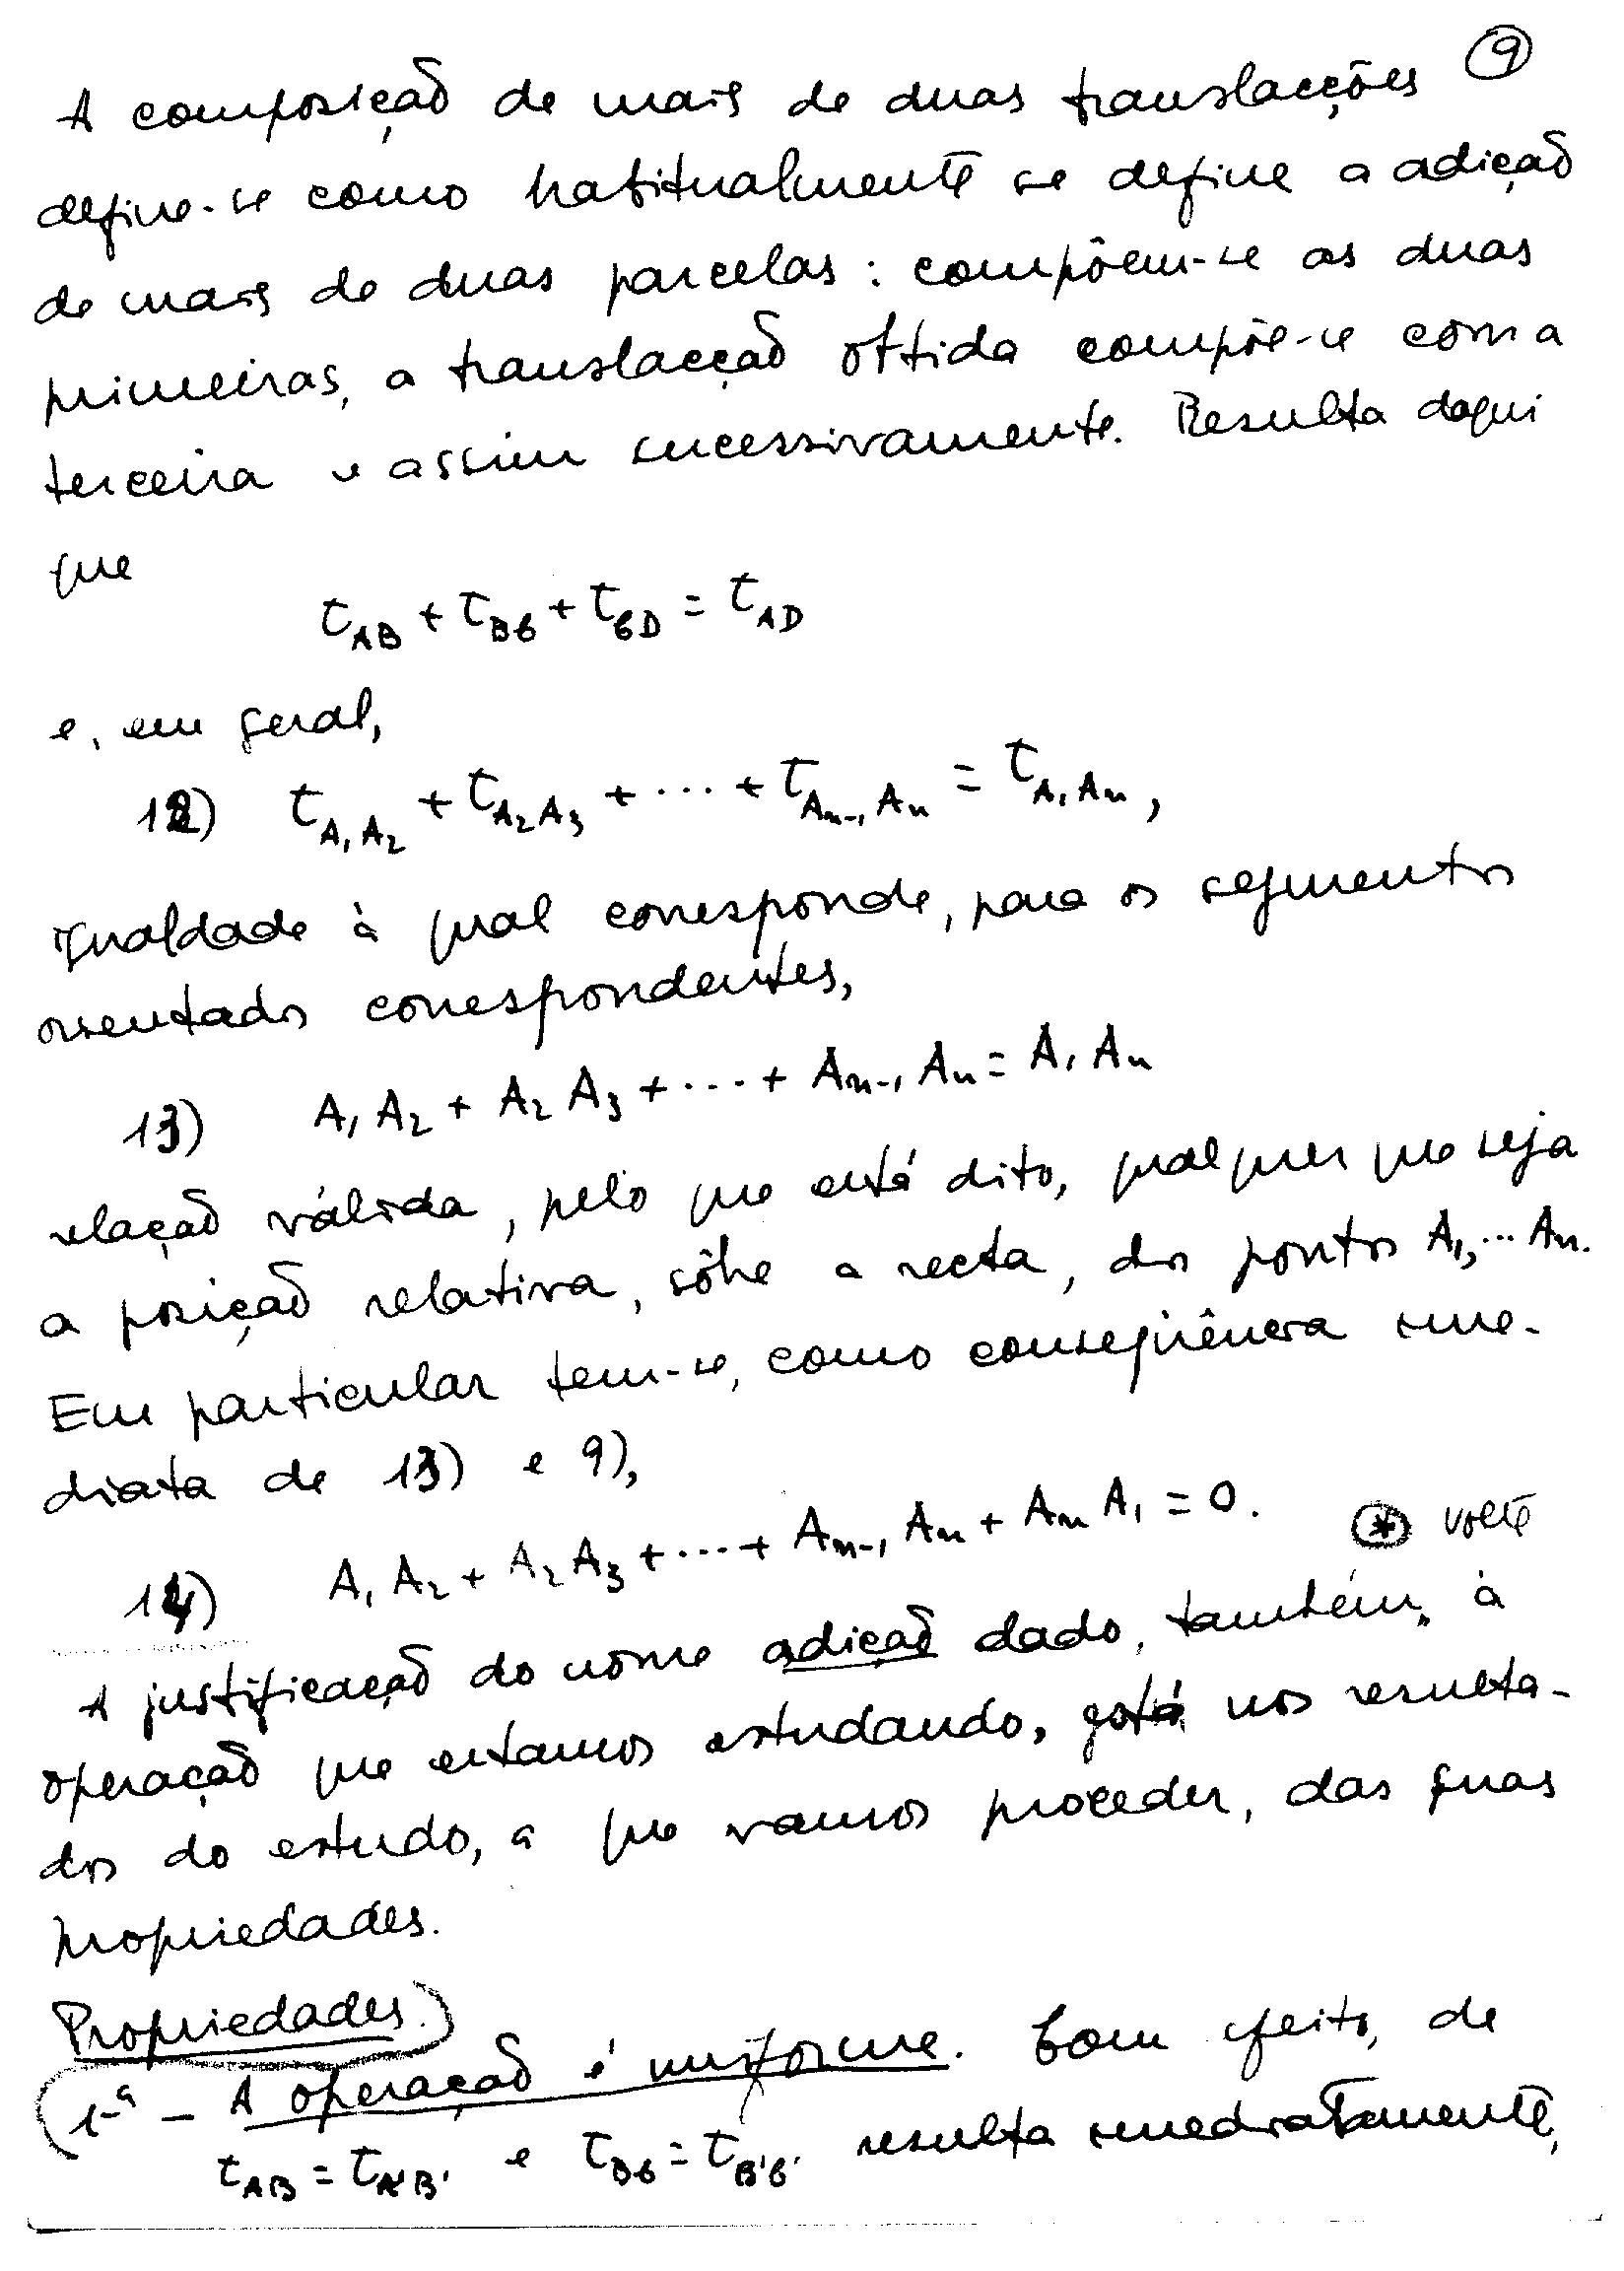 9
A composição de mais de duas translacções
define-se como habitualmente se define a adição
de mais de duas parcelas: compõem-se as duas
primeiras, a translacção obtida compõe-se com a
terceira e assim sucessivamente. Resulta daqui
que
t_AB + t_BC + t_CD = t_AD
e, em geral,
12) t_A₁A₂ + t_A₂A₃ + ··· + t_Aₙ₋₁Aₙ = t_A₁Aₙ,
igualdade à qual corresponde, para os segmentos
orientados correspondentes,
13) A₁A₂ + A₂A₃ + ··· + Aₙ₋₁Aₙ = A₁Aₙ
relação válida, pelo que está dito, qualquer que seja
a posição relativa, sôbre a recta, dos pontos A₁, ··· Aₙ.
Em particular tem-se, como conseqüência ime-
diata de 13) e 9),
14) A₁A₂ + A₂A₃ + ··· + Aₙ₋₁Aₙ + AₙA₁ = 0. * volte
A justificação do nome adição dado, também, à
operação que estamos estudando, está nos resulta-
dos do estudo, a que vamos proceder, das suas
propriedades.
Propriedades.
1-ª – A operação é uniforme. Com efeito, de
t_AB = t_A'B' e t_BC = t_B'C' resulta imediatamente,